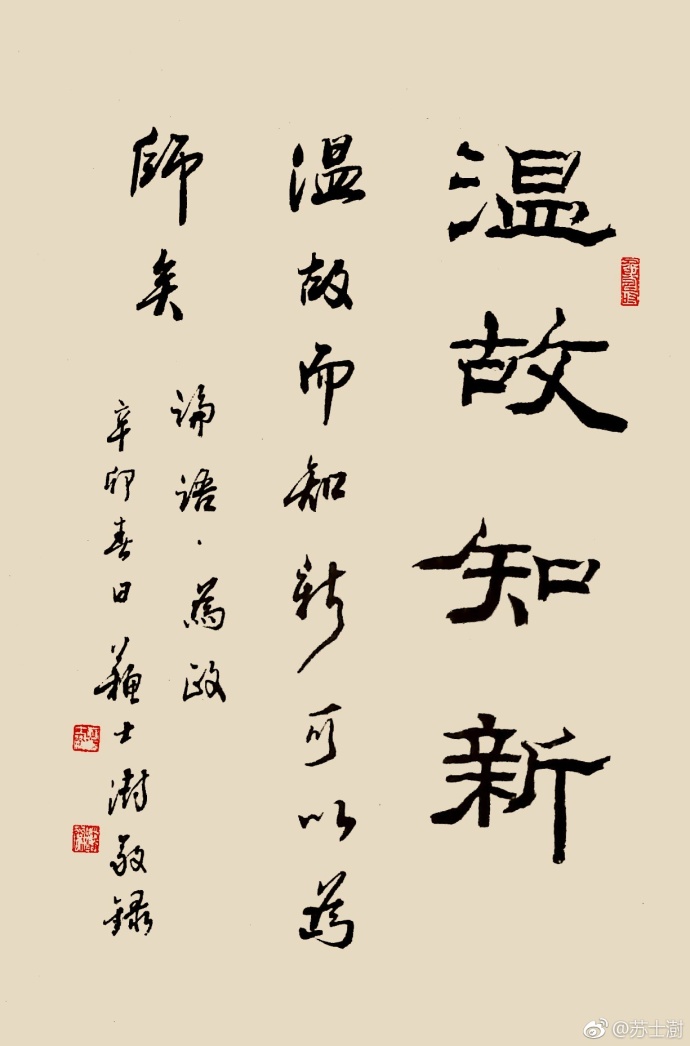 温故知新
温故而知新可以爲
師矣
論語·爲政
辛卯春日蘇士澍敬錄
@苏士澍